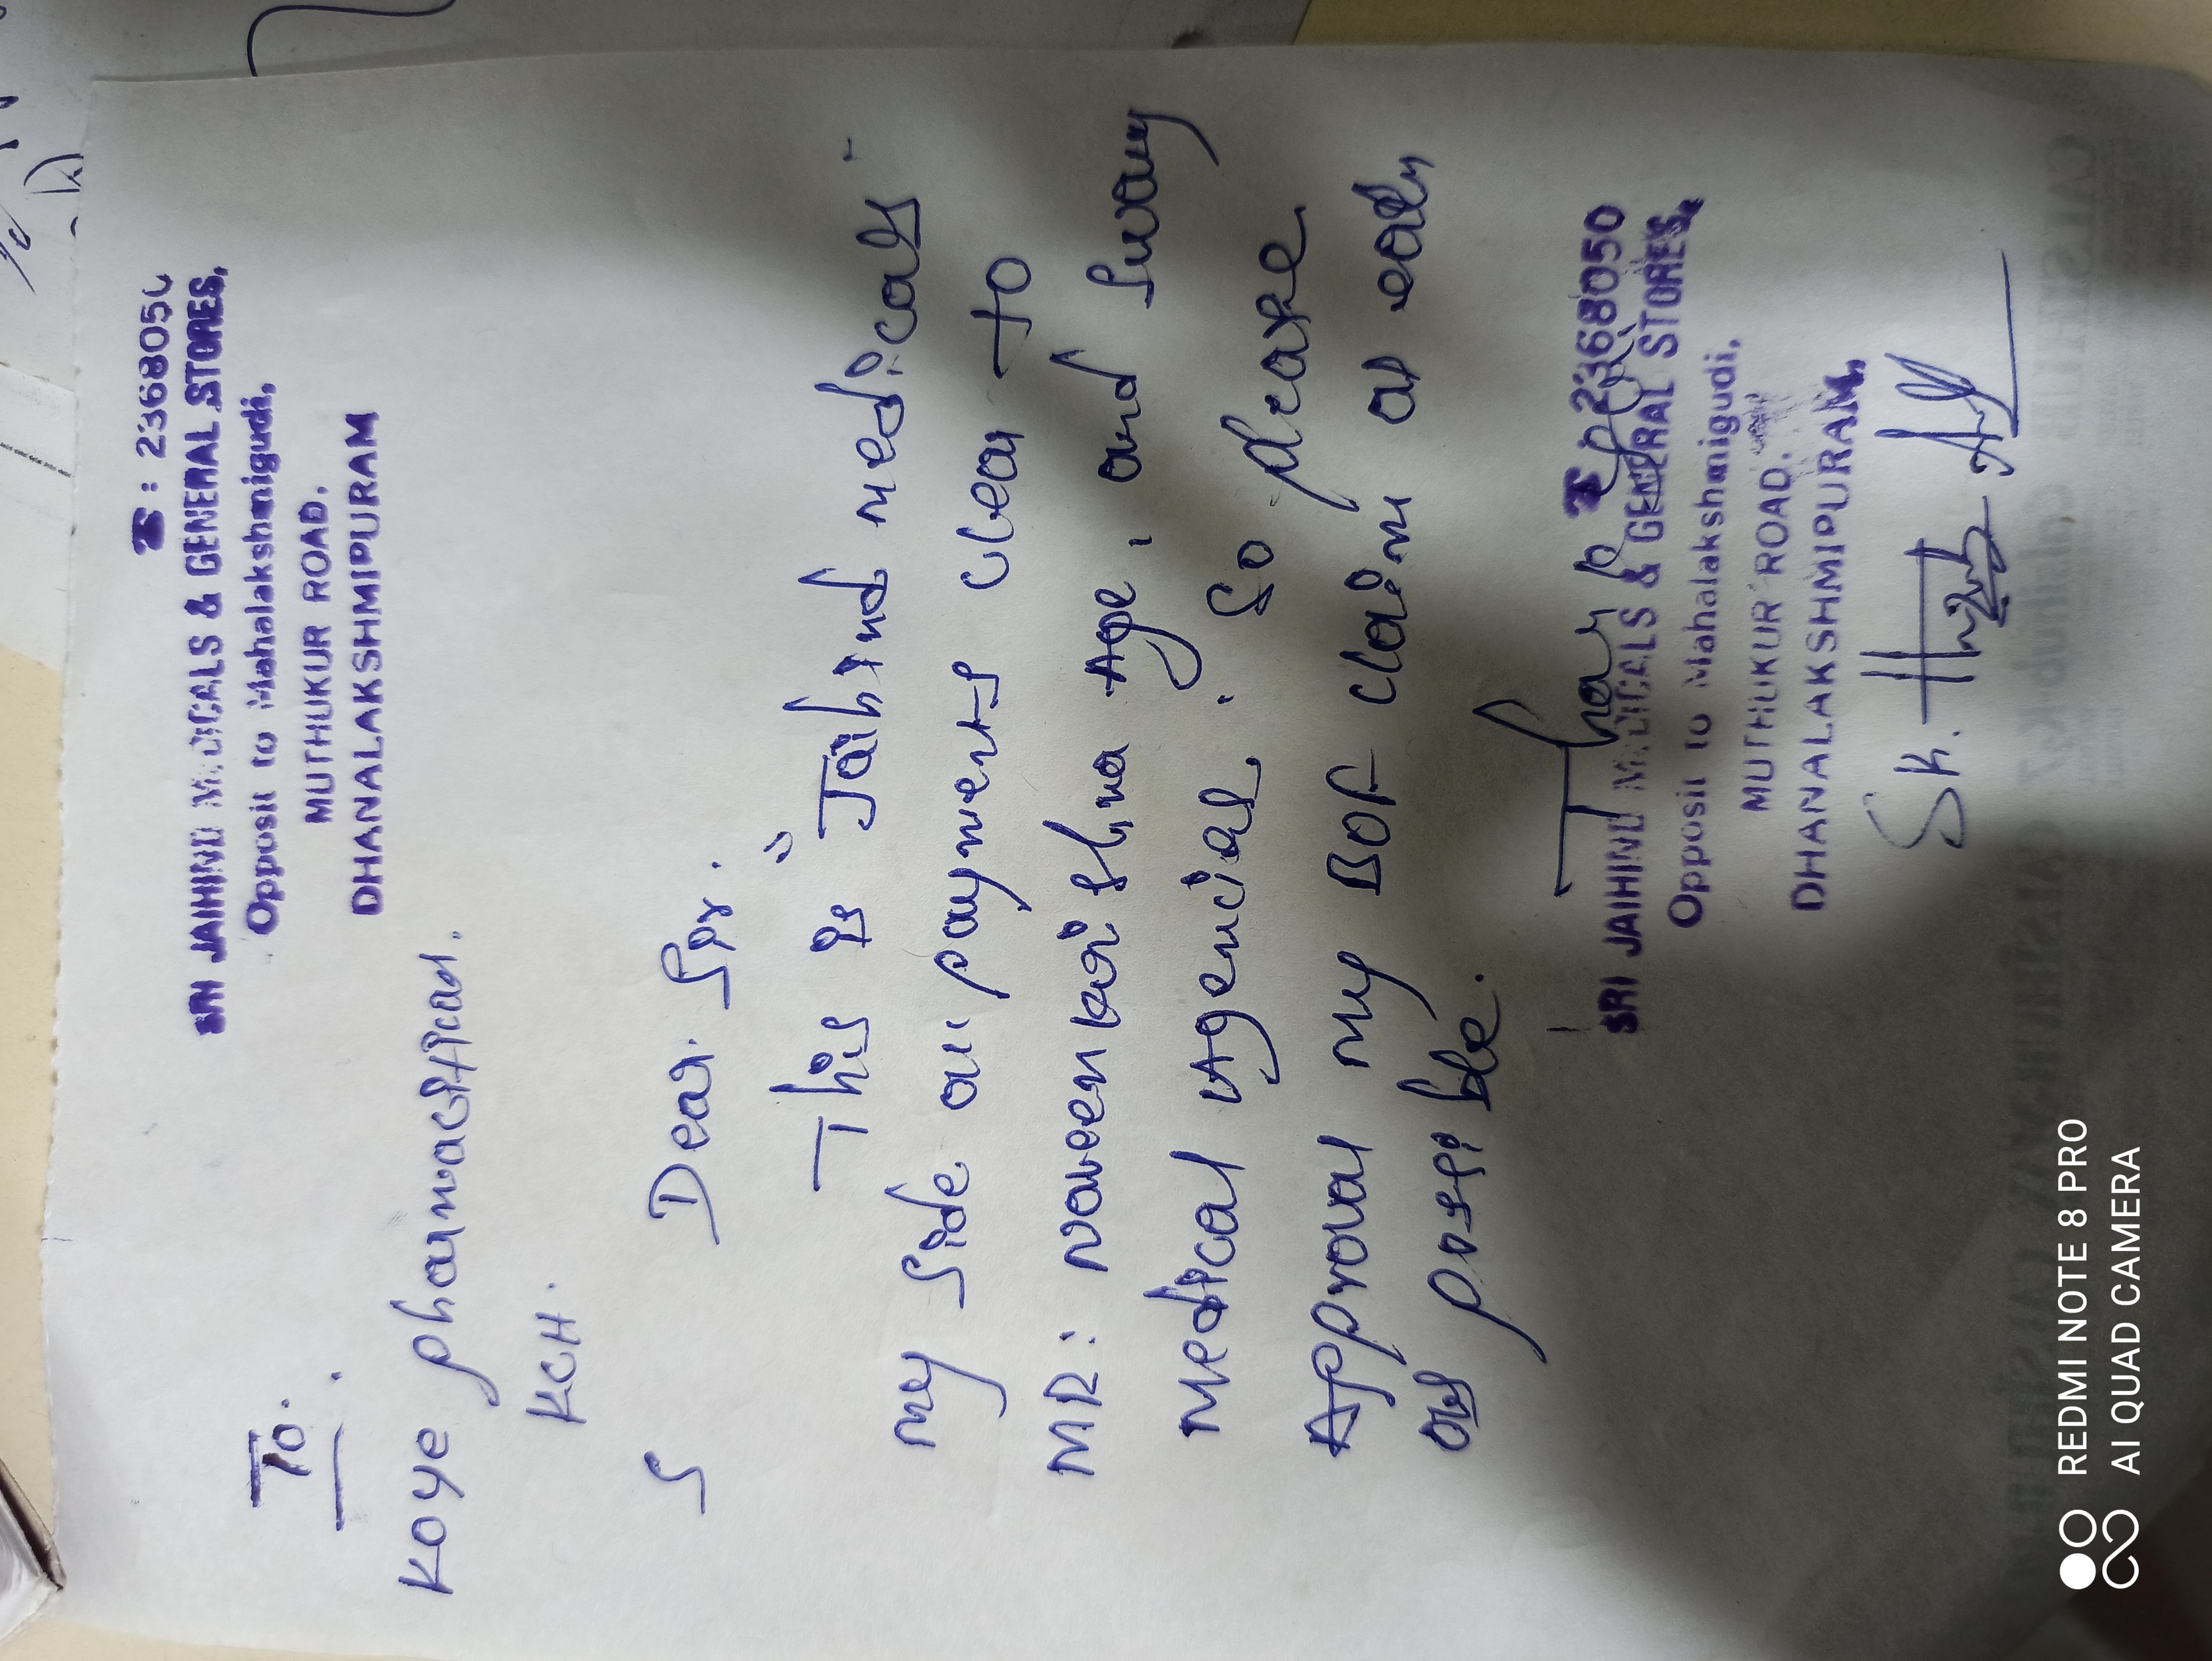 ☎ : 2368050
SRI JAIHIND MEDICALS & GENERAL STORES,
Opposit to Mahalakshmigudi,
MUTHUKUR ROAD.
DHANALAKSHMIPURAM
To.
Koye pharmacitical.
KCH.
Dear. Sir.
This is "Jaihind medicals
my side all payments clear to
MR: naveen krishna Age, and Sway
Medical Agencial. So please
Approval my BOF claim as early
as possible.
Thank
☎ 2368050
SRI JAIHIND MEDICALS & GENERAL STORES,
Opposit to Mahalakshmigudi,
MUTHUKUR ROAD.
DHANALAKSHMIPURAM.
Sk.
REDMI NOTE 8 PRO
AI QUAD CAMERA